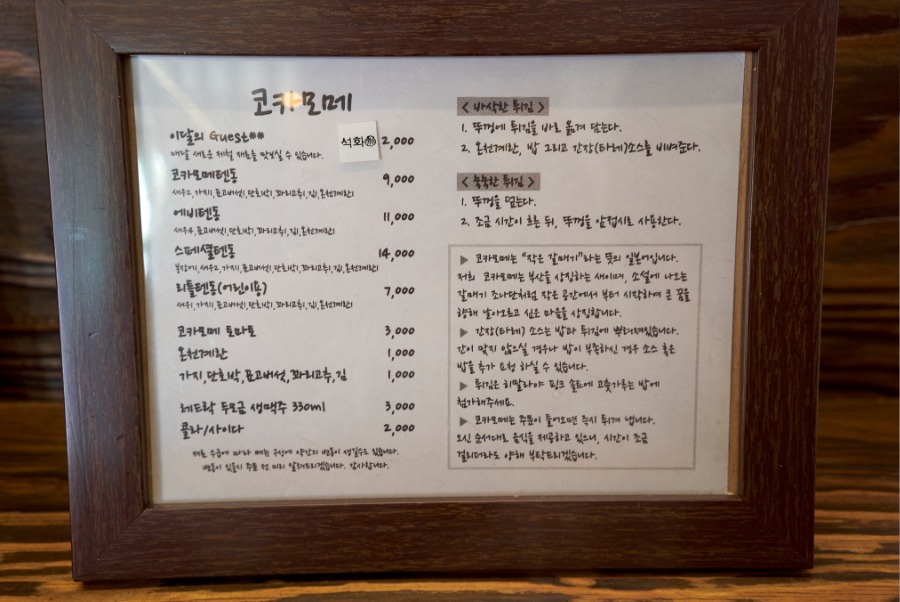 코카모메
이달의 Guest## 석화 2,000
매달 새로운 제철 재료를 맛보실 수 있습니다.
코카모메텐동 9,000
새우2,가지1,표고버섯1,단호박1,꽈리고추1,김1,온천계란1
에비텐동 11,000
새우4,표고버섯1,단호박1,꽈리고추1,김1,온천계란1
스페셜텐동 14,000
붕장어1,새우2,가지1,표고버섯1,단호박1,꽈리고추1,김1,온천계란1
리틀텐동(어린이용) 7,000
새우1,가지1,표고버섯1,단호박1,꽈리고추1,김1,온천계란1
코카모메 토마토 3,000
온천계란 1,000
가지,단호박,표고버섯,꽈리고추,김 1,000
레드락 두모금 생맥주 330ml 3,000
콜라/사이다 2,000
재료 수급에 따라 메뉴 구성에 약간의 변동이 생길수도 있습니다.
변동이 있을시 주문 전 미리 알려드리겠습니다. 감사합니다.
< 바삭한 튀김 >
1. 뚜껑에 튀김을 바로 옮겨 담는다.
2. 온천계란, 밥 그리고 간장(타레)소스를 비벼준다.
< 촉촉한 튀김 >
1. 뚜껑을 덮는다.
2. 조금 시간이 흐른 뒤, 뚜껑을 앞접시로 사용한다.
▶ 코카모메는 "작은 갈매기"라는 뜻의 일본어입니다.
저희 코카모메는 부산을 상징하는 새이며, 소설에 나오는
갈매기 조나단처럼 작은 공간에서 부터 시작하여 큰 꿈을
향해 날아오르고 싶은 마음을 상징합니다.
▶ 간장(타레) 소스는 밥과 튀김에 뿌려져있습니다.
간이 맞지 않으실 경우나 밥이 부족하신 경우 소스 혹은
밥을 추가 요청 하실 수 있습니다.
▶ 튀김은 히말라야 핑크 솔트에 고춧가루는 밥에
첨가해주세요.
▶ 코카모메는 주문이 들어오면 즉시 튀겨 냅니다.
오신 순서대로 음식을 제공하고 있으니, 시간이 조금
걸리더라도 양해 부탁드리겠습니다.